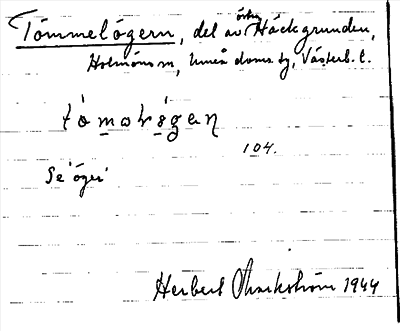 Tömmelögern, del av östra Häckgrunden,
Holmöns sn, Umeå doms. bg, Västerb. l.
tö̀mǝlö̀gǝn
104.
Se 'öger'
Herbert Markström 1944